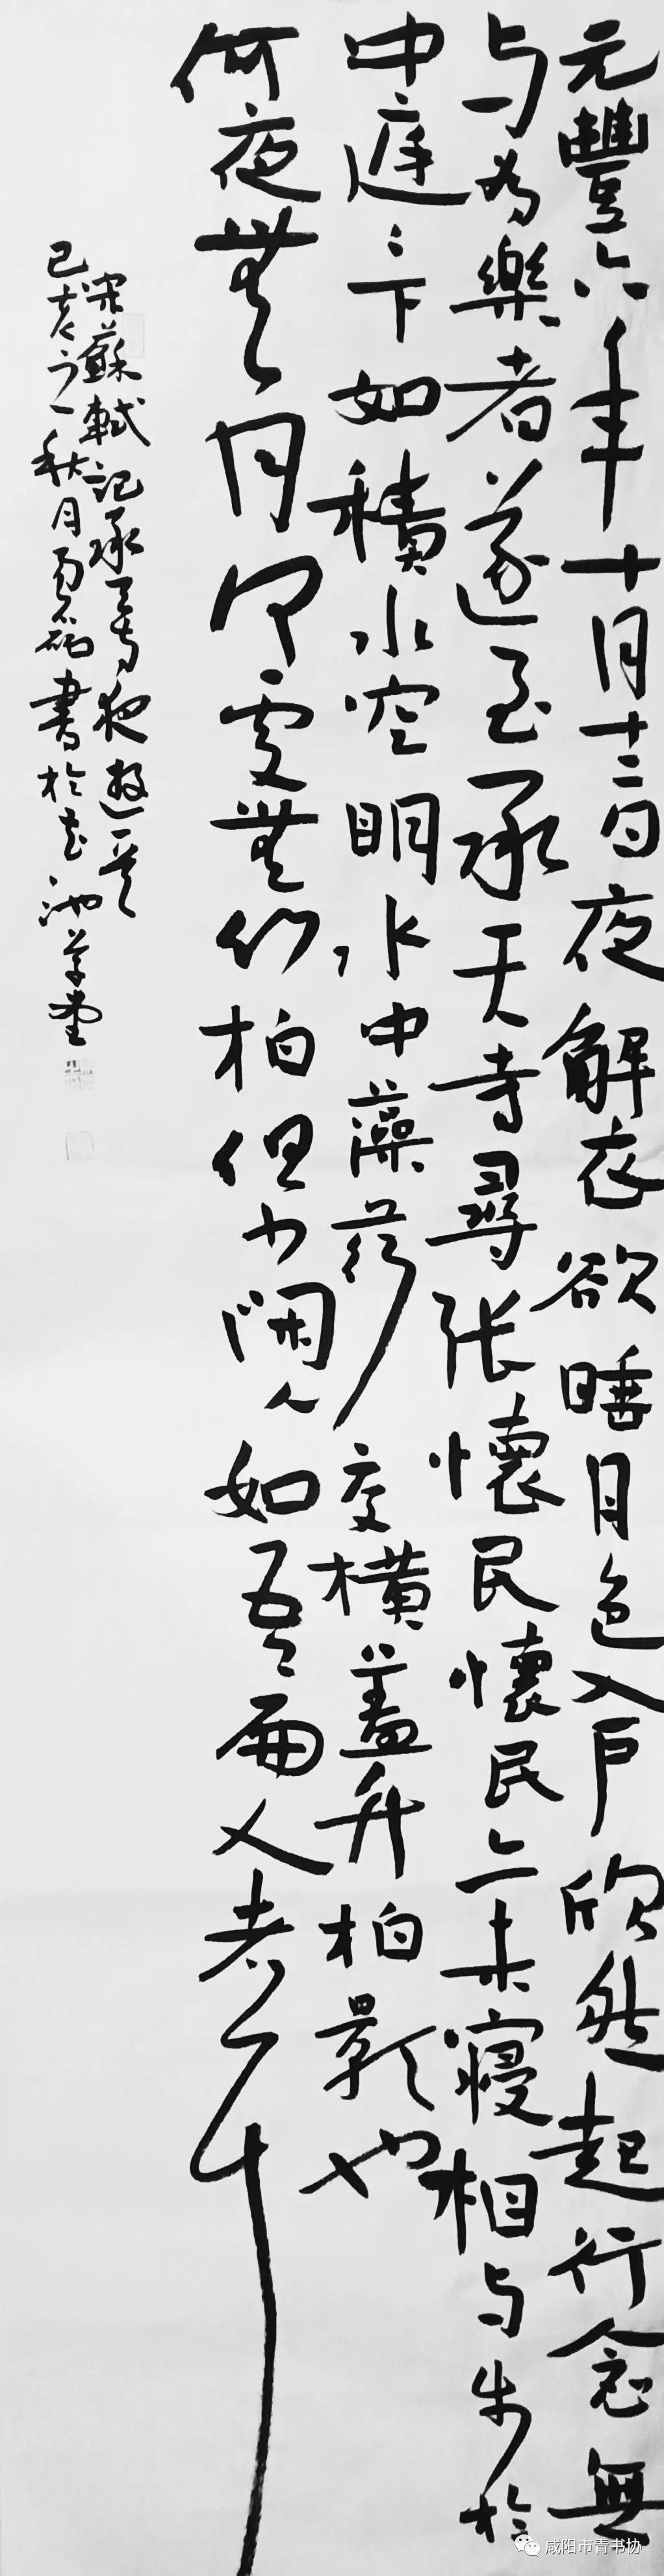 元豐六年十月十二日夜解衣欲睡月色入戶欣然起行念無
与为樂者遂至承天寺尋张懷民懷民亦未寢相与步於
中庭〻下如積水空明水中藻荇交橫蓋竹柏影也
何夜無月何處無竹柏但少閑人如吾兩人者耳
宋蘇軾記承天寺夜遊
己亥之秋月書於池草堂
咸阳市青书协